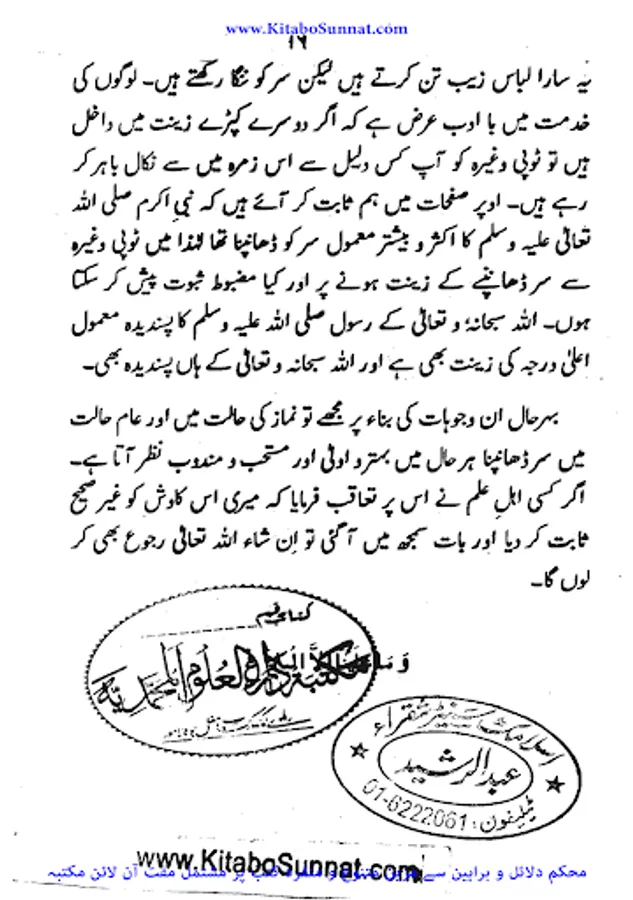 www.KitaboSunnat.com
۱۶
یہ سارا لباس زیب تن کرتے ہیں لیکن سر کو ننگا رکھتے ہیں۔ لوگوں کی
خدمت میں با ادب عرض ہے کہ اگر دوسرے کپڑے زینت میں داخل
ہیں تو ٹوپی وغیرہ کو آپ کس دلیل سے اس زمرہ میں سے نکال باہر کر
رہے ہیں۔ اوپر صفحات میں ہم ثابت کر آئے ہیں کہ نبی اکرم صلی اللہ
تعالیٰ علیہ وسلم کا اکثر و بیشتر معمول سر کو ڈھانپنا تھا لہٰذا میں ٹوپی وغیرہ
سے سر ڈھانپنے کے زینت ہونے پر اور کیا مضبوط ثبوت پیش کر سکتا
ہوں۔ اللہ سبحانہٗ و تعالیٰ کے رسول صلی اللہ علیہ وسلم کا پسندیدہ معمول
اعلیٰ درجہ کی زینت بھی ہے اور اللہ سبحانہ و تعالیٰ کے ہاں پسندیدہ بھی۔
بہرحال ان وجوہات کی بناء پر مجھے تو نماز کی حالت میں اور عام حالت
میں سر ڈھانپنا ہر حال میں بہتر و اولیٰ اور مستحب و مندوب نظر آتا ہے۔
اگر کسی اہلِ علم نے اس پر تعاقب فرمایا کہ میری اس کاوش کو غیر صحیح
ثابت کر دیا اور بات سمجھ میں آ گئی تو اِن شاء اللہ تعالیٰ رجوع بھی کر
لوں گا۔
العلوم المحمدیہ
اسلامک سینٹر شقراء
عبدالرشید
ٹیلیفون: 01-6222061
www.KitaboSunnat.com
محکم دلائل و براہین سے مزین متنوع و منفرد کتب پر مشتمل مفت آن لائن مکتبہ